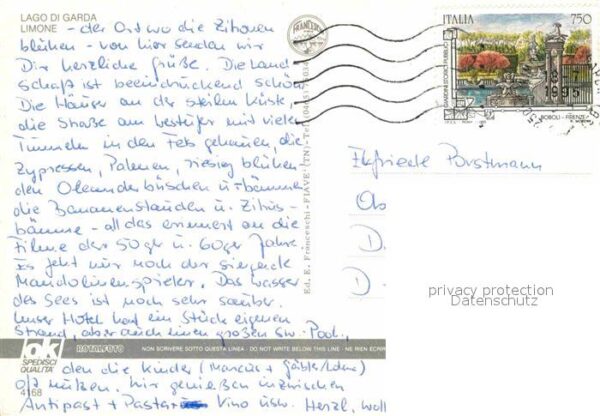 LAGO DI GARDA
LIMONE - der Ort wo die Zitronen
blühen - von hier senden wir
Dir herzliche Grüße. Die Land-
schaft ist beeindruckend schön
Die Häuser an der steilen Küste,
die Straße am Westufer mit vielen
Tunneln in den Fels gehauen, die
Zypressen, Palmen, riesig blühen-
den Oleanderbüschen u. -bäumen
die Bananenstauden u. Zitrus-
bäume - all das erinnert an die
Filme der 50ger u. 60ger Jahre.
Es fehlt nur noch der singende
Mandolinenspieler. Das Wasser
des Sees ist noch sehr sauber.
Unser Hotel hat ein Stück eigenen
Strand, aber auch einen großen Sw.-Pool,
den die Kinder (Marcus +
oft nützen. Wir genießen inzwischen
Antipast + Pasta Vino usw. Herzl.
ok
SPEDISCI
QUALITA'
4168
ROTALFOTO
NON SCRIVERE SOTTO QUESTA LINEA - DO NOT WRITE BELOW THIS LINE - NE RIEN ECRIR
Ed. E. Franceschi - FIAVE' (TN) - Tel.
ITALIA 750
GIARDINI STORICI PUBBLICI
BOBOLI - FIRENZE
1995
Elfriede Borstmann
D
privacy protection
Datenschutz